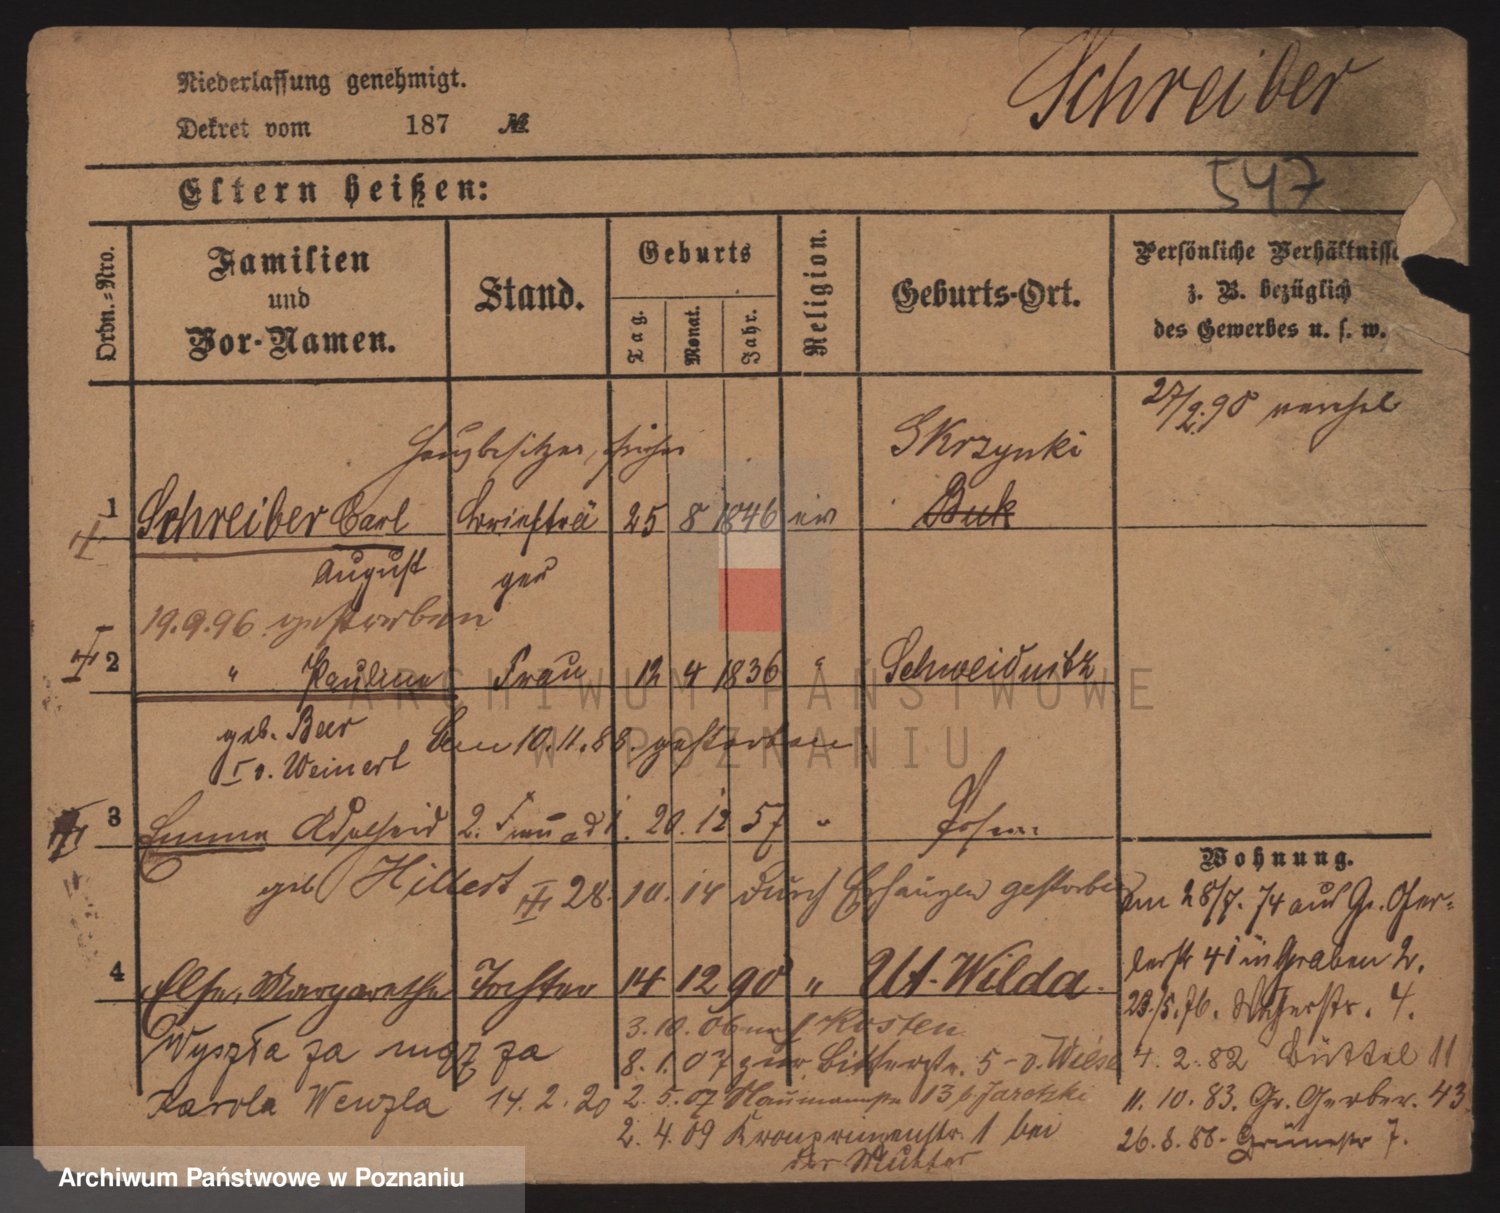 Niederlassung genehmigt.
Schreiber
Dekret vom 187 №
547
Eltern heißen:
Ordn.=Nro.
Familien und Vor-Namen.
Stand.
Geburts
Tag.
Monat.
Jahr.
Religion.
Geburts-Ort.
Persönliche Verhältnisse
z. B. bezüglich
des Gewerbes u. s. w.
27/2.98
Hausbesitzer, früher
Skrzynki
1 Schreiber Carl Briefträ 25 8 1846 ev Buk
August ger
19.9.96 gestorben
2 " Pauline Frau 12 4 1836 " Schweidnitz
geb. Beer Am 10.11.88. gestorben
I v. Weinert
3 Emma Adelheid 2. Frau ad 1. 20. 12 57 " Posen
Wohnung.
geb Hillert 28. 10. 14 durch Erhängen gestorben
Am 28/7. 74 aus Gr. Ger-
berstr 41 in Graben 2.
4 Else, Margarethe Tochter 14 12 90 " Ut-Wilda.
23/5.76. 4.
3.10.06 Kosten
Wyszła za mąż za 8.1.07 zur Bitterstr. 5 - v. Wiese
4. 2. 82 Büttel 11
Karola Wenzla 14.2.20 2.5.07 Naumannstr 13 b. Jarocki
11. 10. 83. Gr. Gerber. 43
2.4.09 Kronprinzenstr. 1 bei
der Mutter
26.8.88- 7.
ARCHIWUM PAŃSTWOWE
W POZNANIU
Archiwum Państwowe w Poznaniu